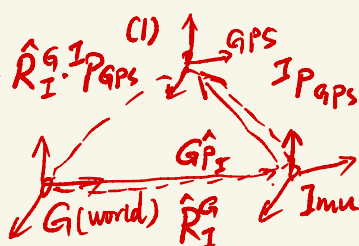 (1)
GPS
R̂_I^G · ^I P_GPS
^I P_GPS
^G P̂_I
G(world)
R̂_I^G
Imu